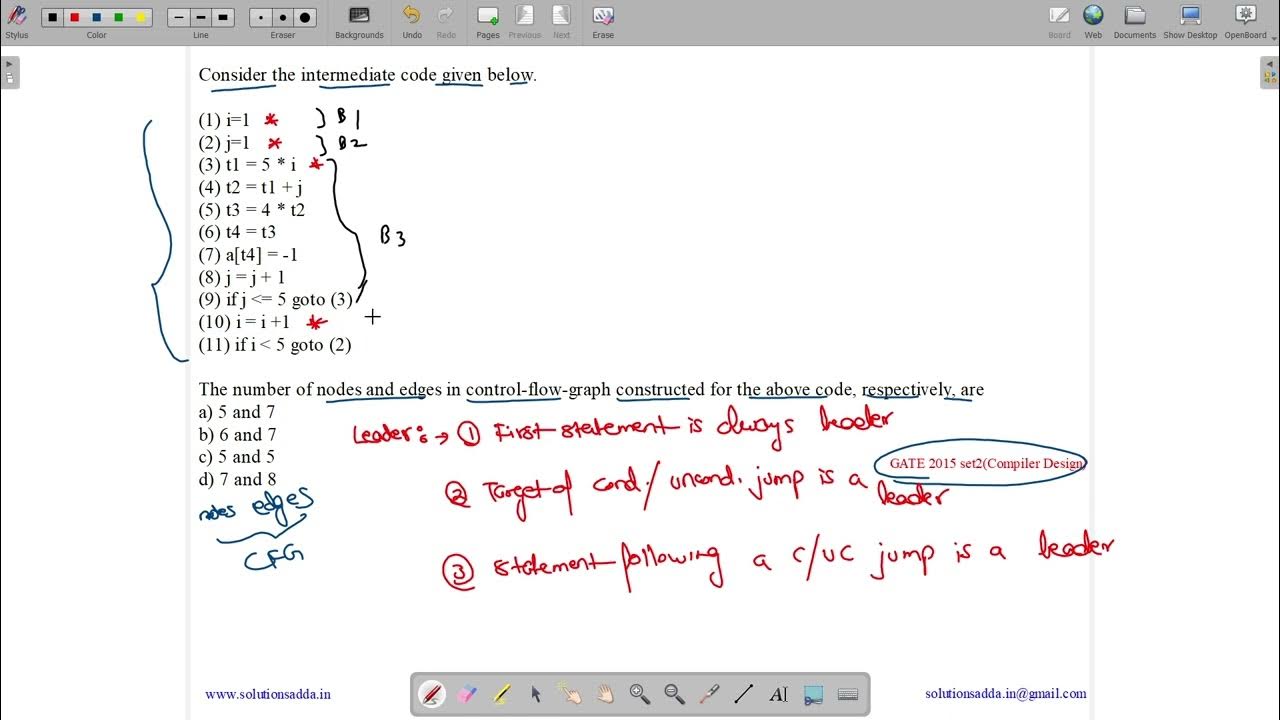 Stylus Color Line Eraser Backgrounds Undo Redo Pages Previous Next Erase Board Web Documents Show Desktop OpenBoard
Consider the intermediate code given below.
(1) i=1 * } B1
(2) j=1 * } B2
(3) t1 = 5 * i *
(4) t2 = t1 + j
(5) t3 = 4 * t2
(6) t4 = t3
B3
(7) a[t4] = -1
(8) j = j + 1
(9) if j <= 5 goto (3)
(10) i = i +1 *
(11) if i < 5 goto (2)
The number of nodes and edges in control-flow-graph constructed for the above code, respectively, are
a) 5 and 7
b) 6 and 7
c) 5 and 5
d) 7 and 8
Leader: → ① First statement is always leader
GATE 2015 set2(Compiler Design
② Target of cond./ uncond. jump is a leader
nodes edges
CFG
③ statement following a C/UC jump is a leader
www.solutionsadda.in
solutionsadda.in@gmail.com